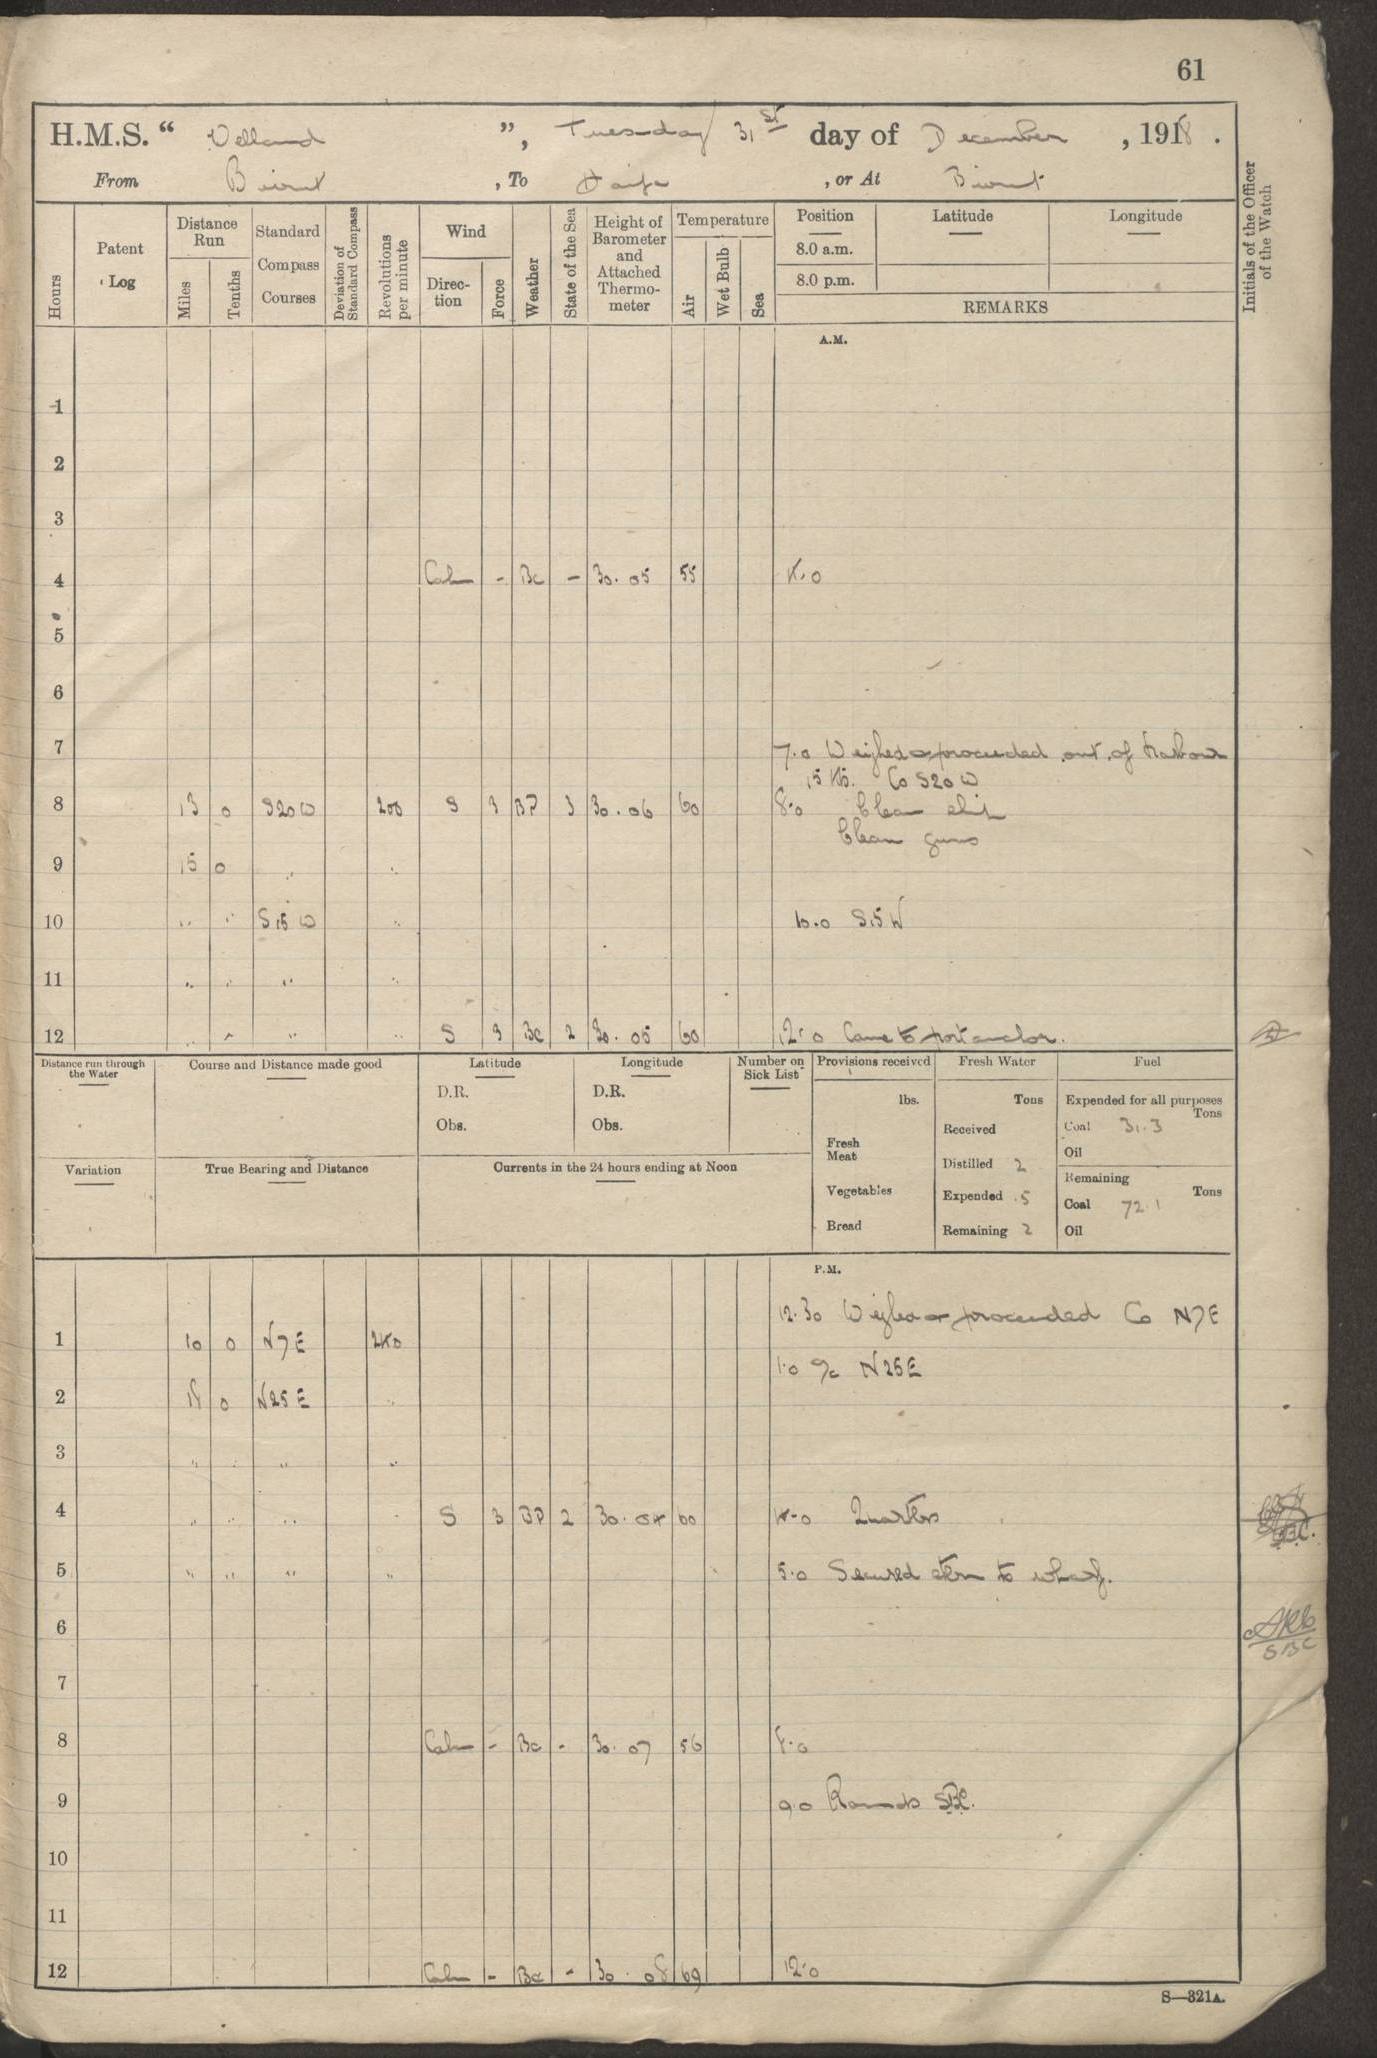 61
H.M.S. “ Welland ”, Tuesday 31st day of December, 1918.
From Beirut, To Haifa, or At Beirut
Hours
Patent Log
Distance Run
Miles
Tenths
Standard Compass Courses
Deviation of Standard Compass
Revolutions per minute
Wind
Direc-tion
Force
Weather
State of the Sea
Height of Barometer and Attached Thermo-meter
Temperature
Air
Wet Bulb
Sea
Position
8.0 a.m.
8.0 p.m.
Latitude
Longitude
REMARKS
Initials of the Officer of the Watch
A.M.
1
2
3
4 Calm - Bc - 30.05 55 4.0
5
6
7 7.0 Weighed & proceeded out of harbour
15 Kts. Co S20W
8 13 0 S20W 200 S 3 BP 3 30.06 60 8.0 Clean ship
Clean guns
9 15 0 " "
10 " " S15W " 10.0 S15W
11 " " " "
12 " " " " S 3 Bc 2 30.05 60 12.0 Came to port anchor.
Distance run through the Water
Course and Distance made good
Latitude
D.R.
Obs.
Longitude
D.R.
Obs.
Number on Sick List
Provisions received
lbs.
Fresh Meat
Vegetables
Bread
Fresh Water
Tons
Received
Distilled 2
Expended 5
Remaining 2
Fuel
Expended for all purposes
Tons
Coal 31.3
Oil
Remaining
Tons
Coal 72.1
Oil
Variation
True Bearing and Distance
Currents in the 24 hours ending at Noon
P.M.
12.30 Weighed & proceeded Co N7E
1 10 0 N7E 240
1.0 a/c N25E
2 18 0 N25E "
3 " " " "
4 " " " " S 3 BP 2 30.04 60 4.0 Quarters
5 " " " " 5.0 Secured stern to wharf.
6
SBC
7
8 Calm - Bc - 30.07 56 8.0
9 9.0 Rounds SBC.
10
11
12 Calm - Bc - 30.08 69 12.0
S—321A.